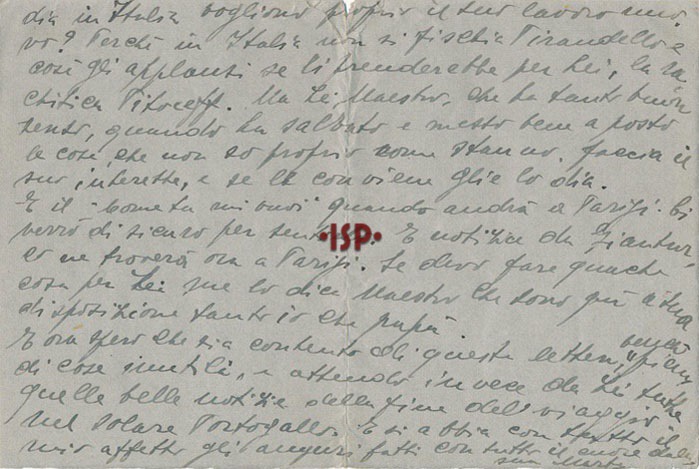 dia in Italia vogliono proprio il suo lavoro nuo
vo? Perchè in Italia non si fischia Pirandello e
così gli applausi se li prenderebbe per Lei, la ra
chitica Pitoeff. Ma Lei Maestro, che ha tanto buon
senso, quando ha salvato e messo bene a posto
le cose, che non so proprio come stanno, faccia il
suo interesse, e se le conviene glie lo dia.
E il "Come tu mi vuoi" quando andrà a Parigi. Ci
verrò di sicuro per
•ISP•
E notizie da
co ne troverà ora a Parigi. Se devo fare qualche
cosa per Lei me lo dica Maestro che sono qui a sua
disposizione tanto io che papà.
E ora spero che sia contento di questa lettera piena
di cose inutili, e attendo invece da Lei tutte
quelle belle notizie dalla fine del viaggio
nel solare Portogallo. E si abbia con tutto il
mio affetto gli auguri fatti con tutto il cuore dalla
sua